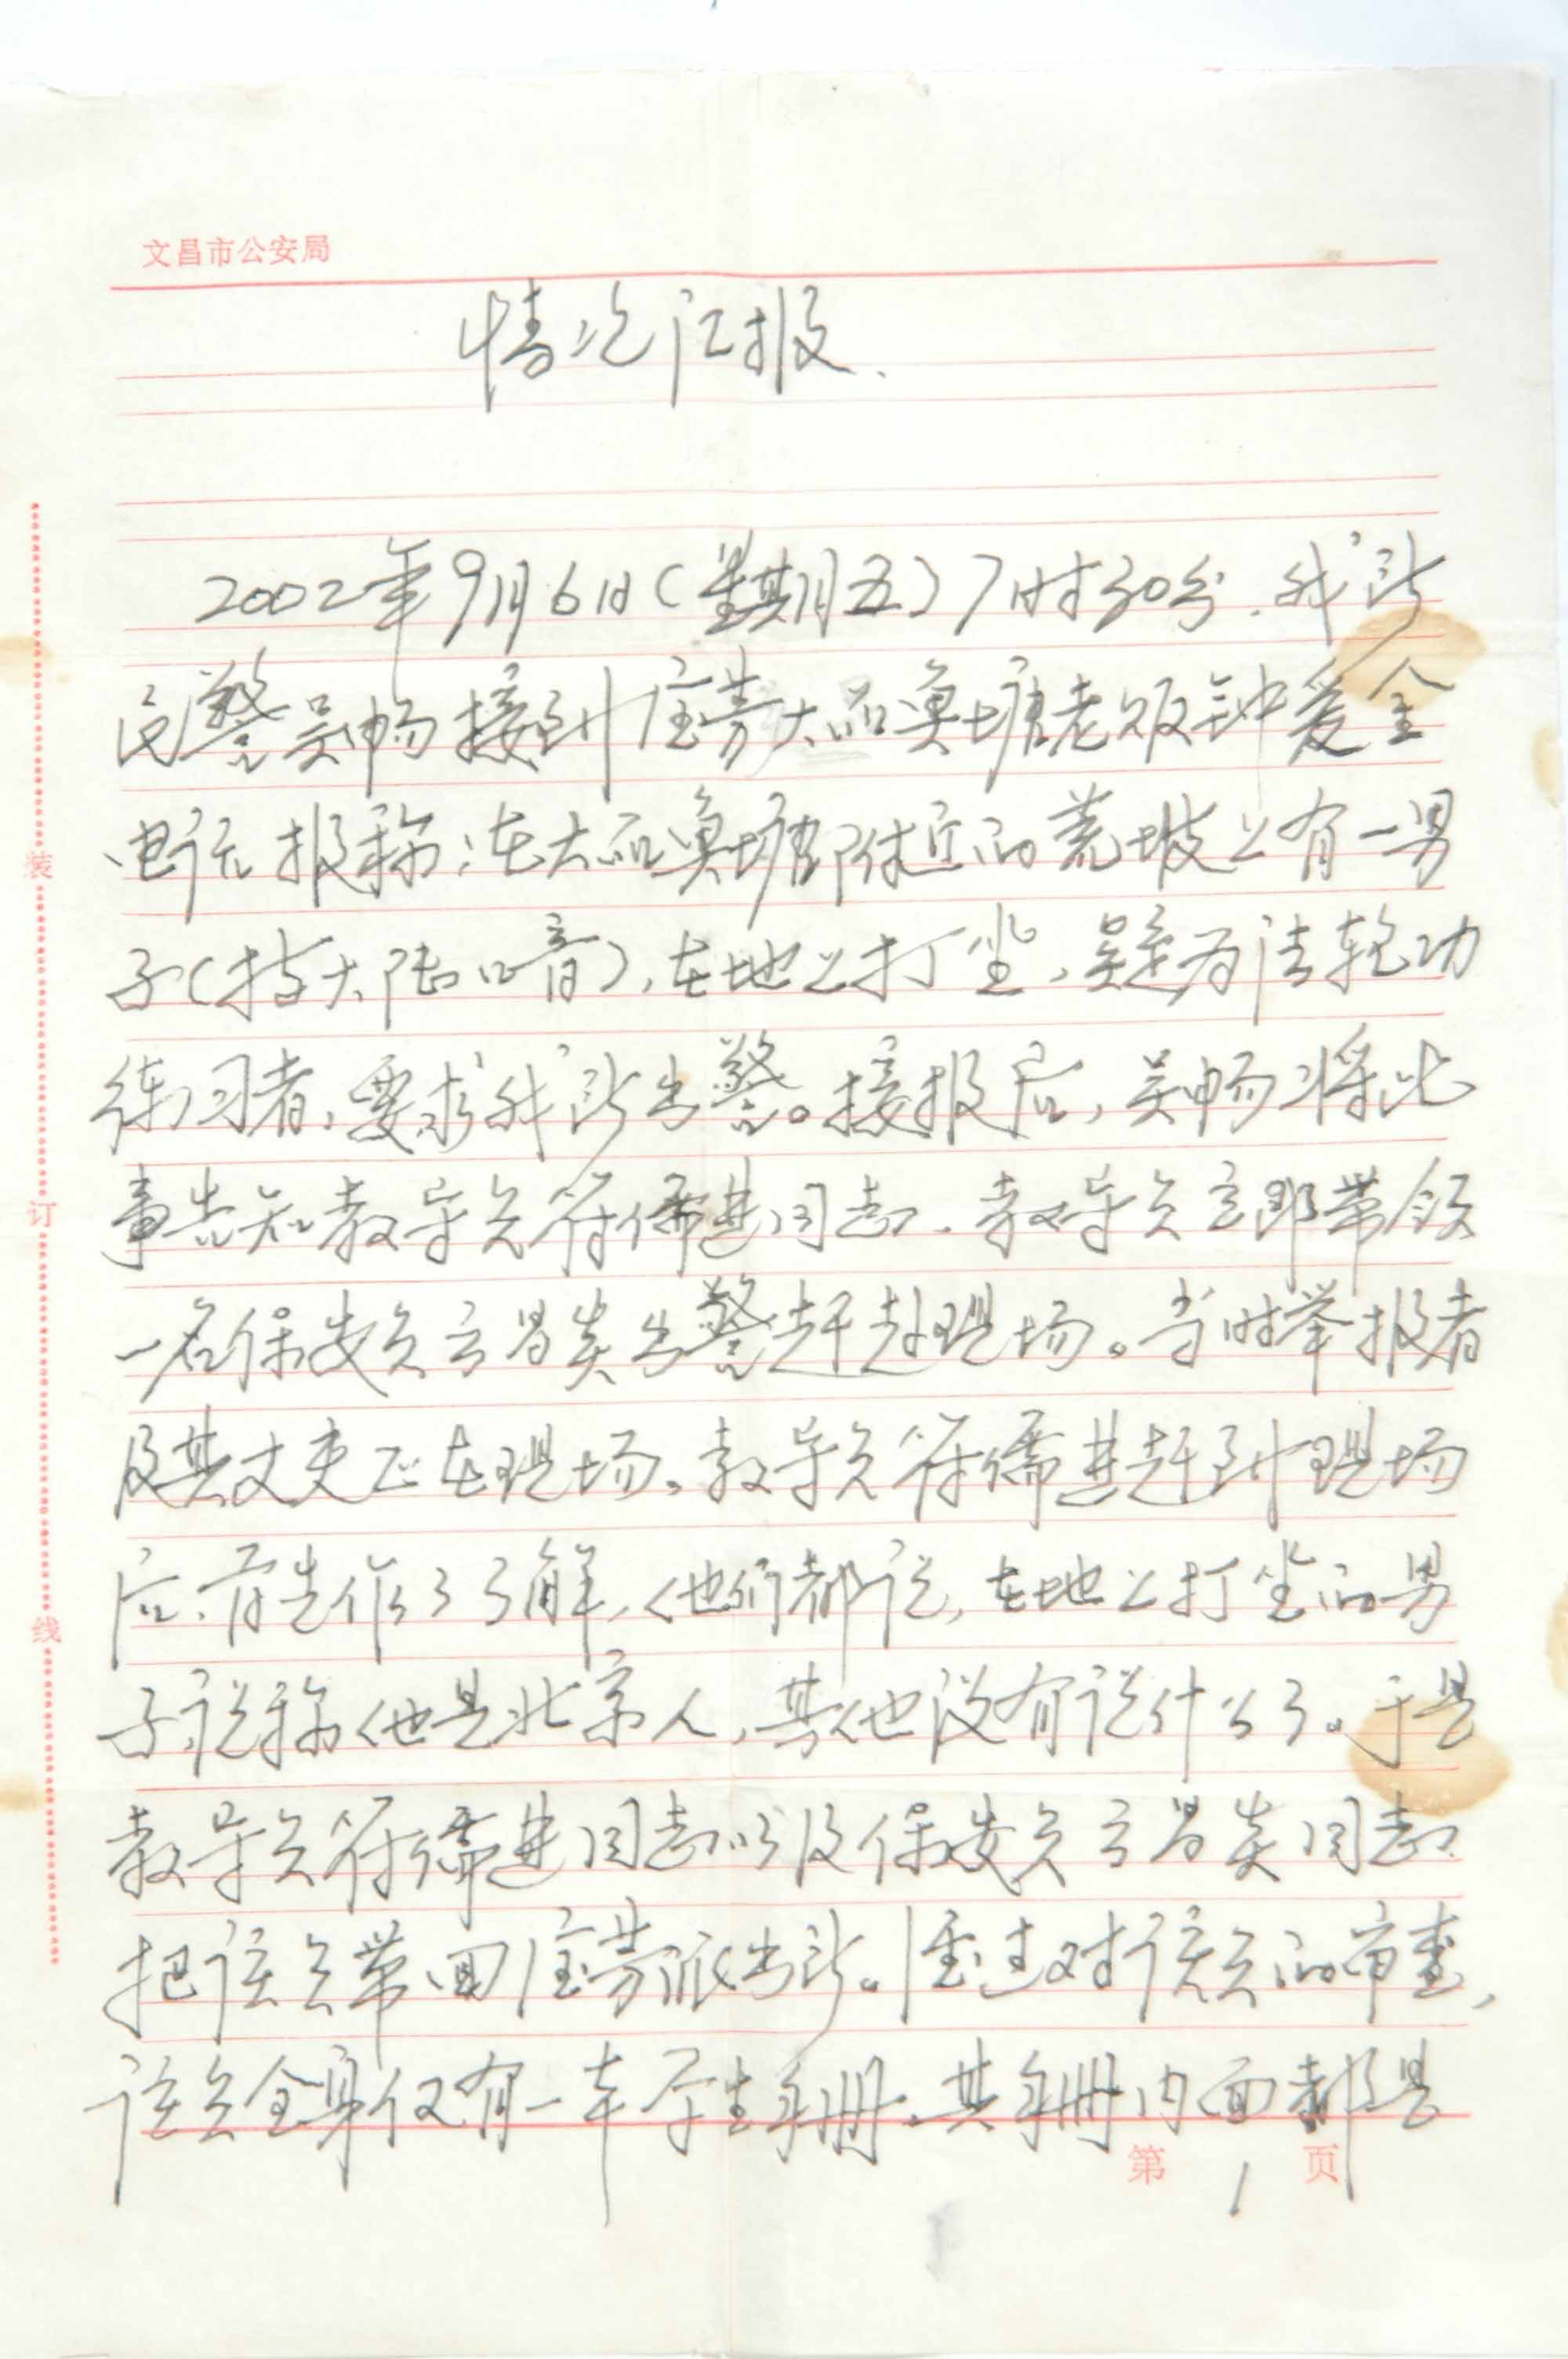 文昌市公安局
情况汇报
2002年9月6日(星期五)7时30分,我所
民警吴畅接到宝芳大石奥塘老板钟爱金
电话报称:在大石奥塘附近的荒坡上有一男
子(持大陆口音),在地上打坐,疑为法轮功
练习者,要求我所出警。接报后,吴畅将此
事告知教导员符儒进同志,教导员立即带领
一名保安员云昌炎出警赶赴现场。当时举报者
及其丈夫正在现场。教导员符儒进赶到现场
后,首先作了了解,他们都说,在地上打坐的男
子说称他是北京人,其他没有说什么了。于是
教导员符儒进同志以及保安员云昌炎同志
把该员带回宝芳派出所。经过对该员的审查,
该员全身仅有一本学生手册,其手册内面都是
第1页
装
订
线